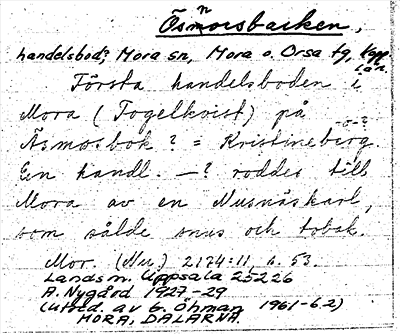 Ösmorsbacken,
handelsbod; Mora sn, Mora o. Orsa tg, Kopp. län.
Första handelsboden i
Mora (Fogelkvist) på
Äsmosbok ? = Kristineberg.
En handl. —? roddes till
Mora av en Nusnäskarl,
som sålde snus och tobak.
Mor. (Nu.) 2174:11, s. 53.
Landsm. Uppsala 25226
A. Nygård 1927-29
(utförd. av G. Öhman 1961-62)
MORA, DALARNA